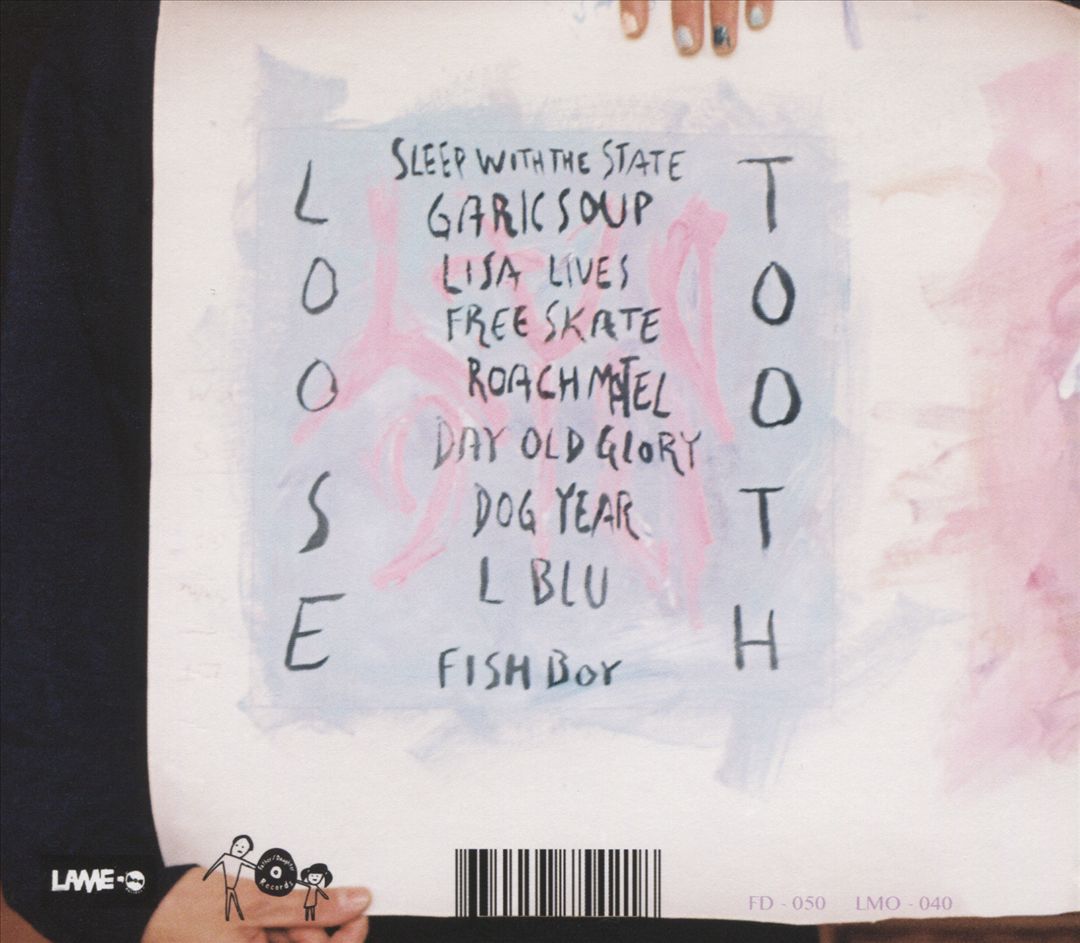 SLEEP WITH THE STATE
GARLIC SOUP
LISA LIVES
FREE SKATE
ROACH MOTEL
DAY OLD GLORY
DOG YEAR
L BLU
FISH BOY
LOOSE
TOOTH
LAME-O
Father/Daughter
Records
FD - 050 LMO - 040